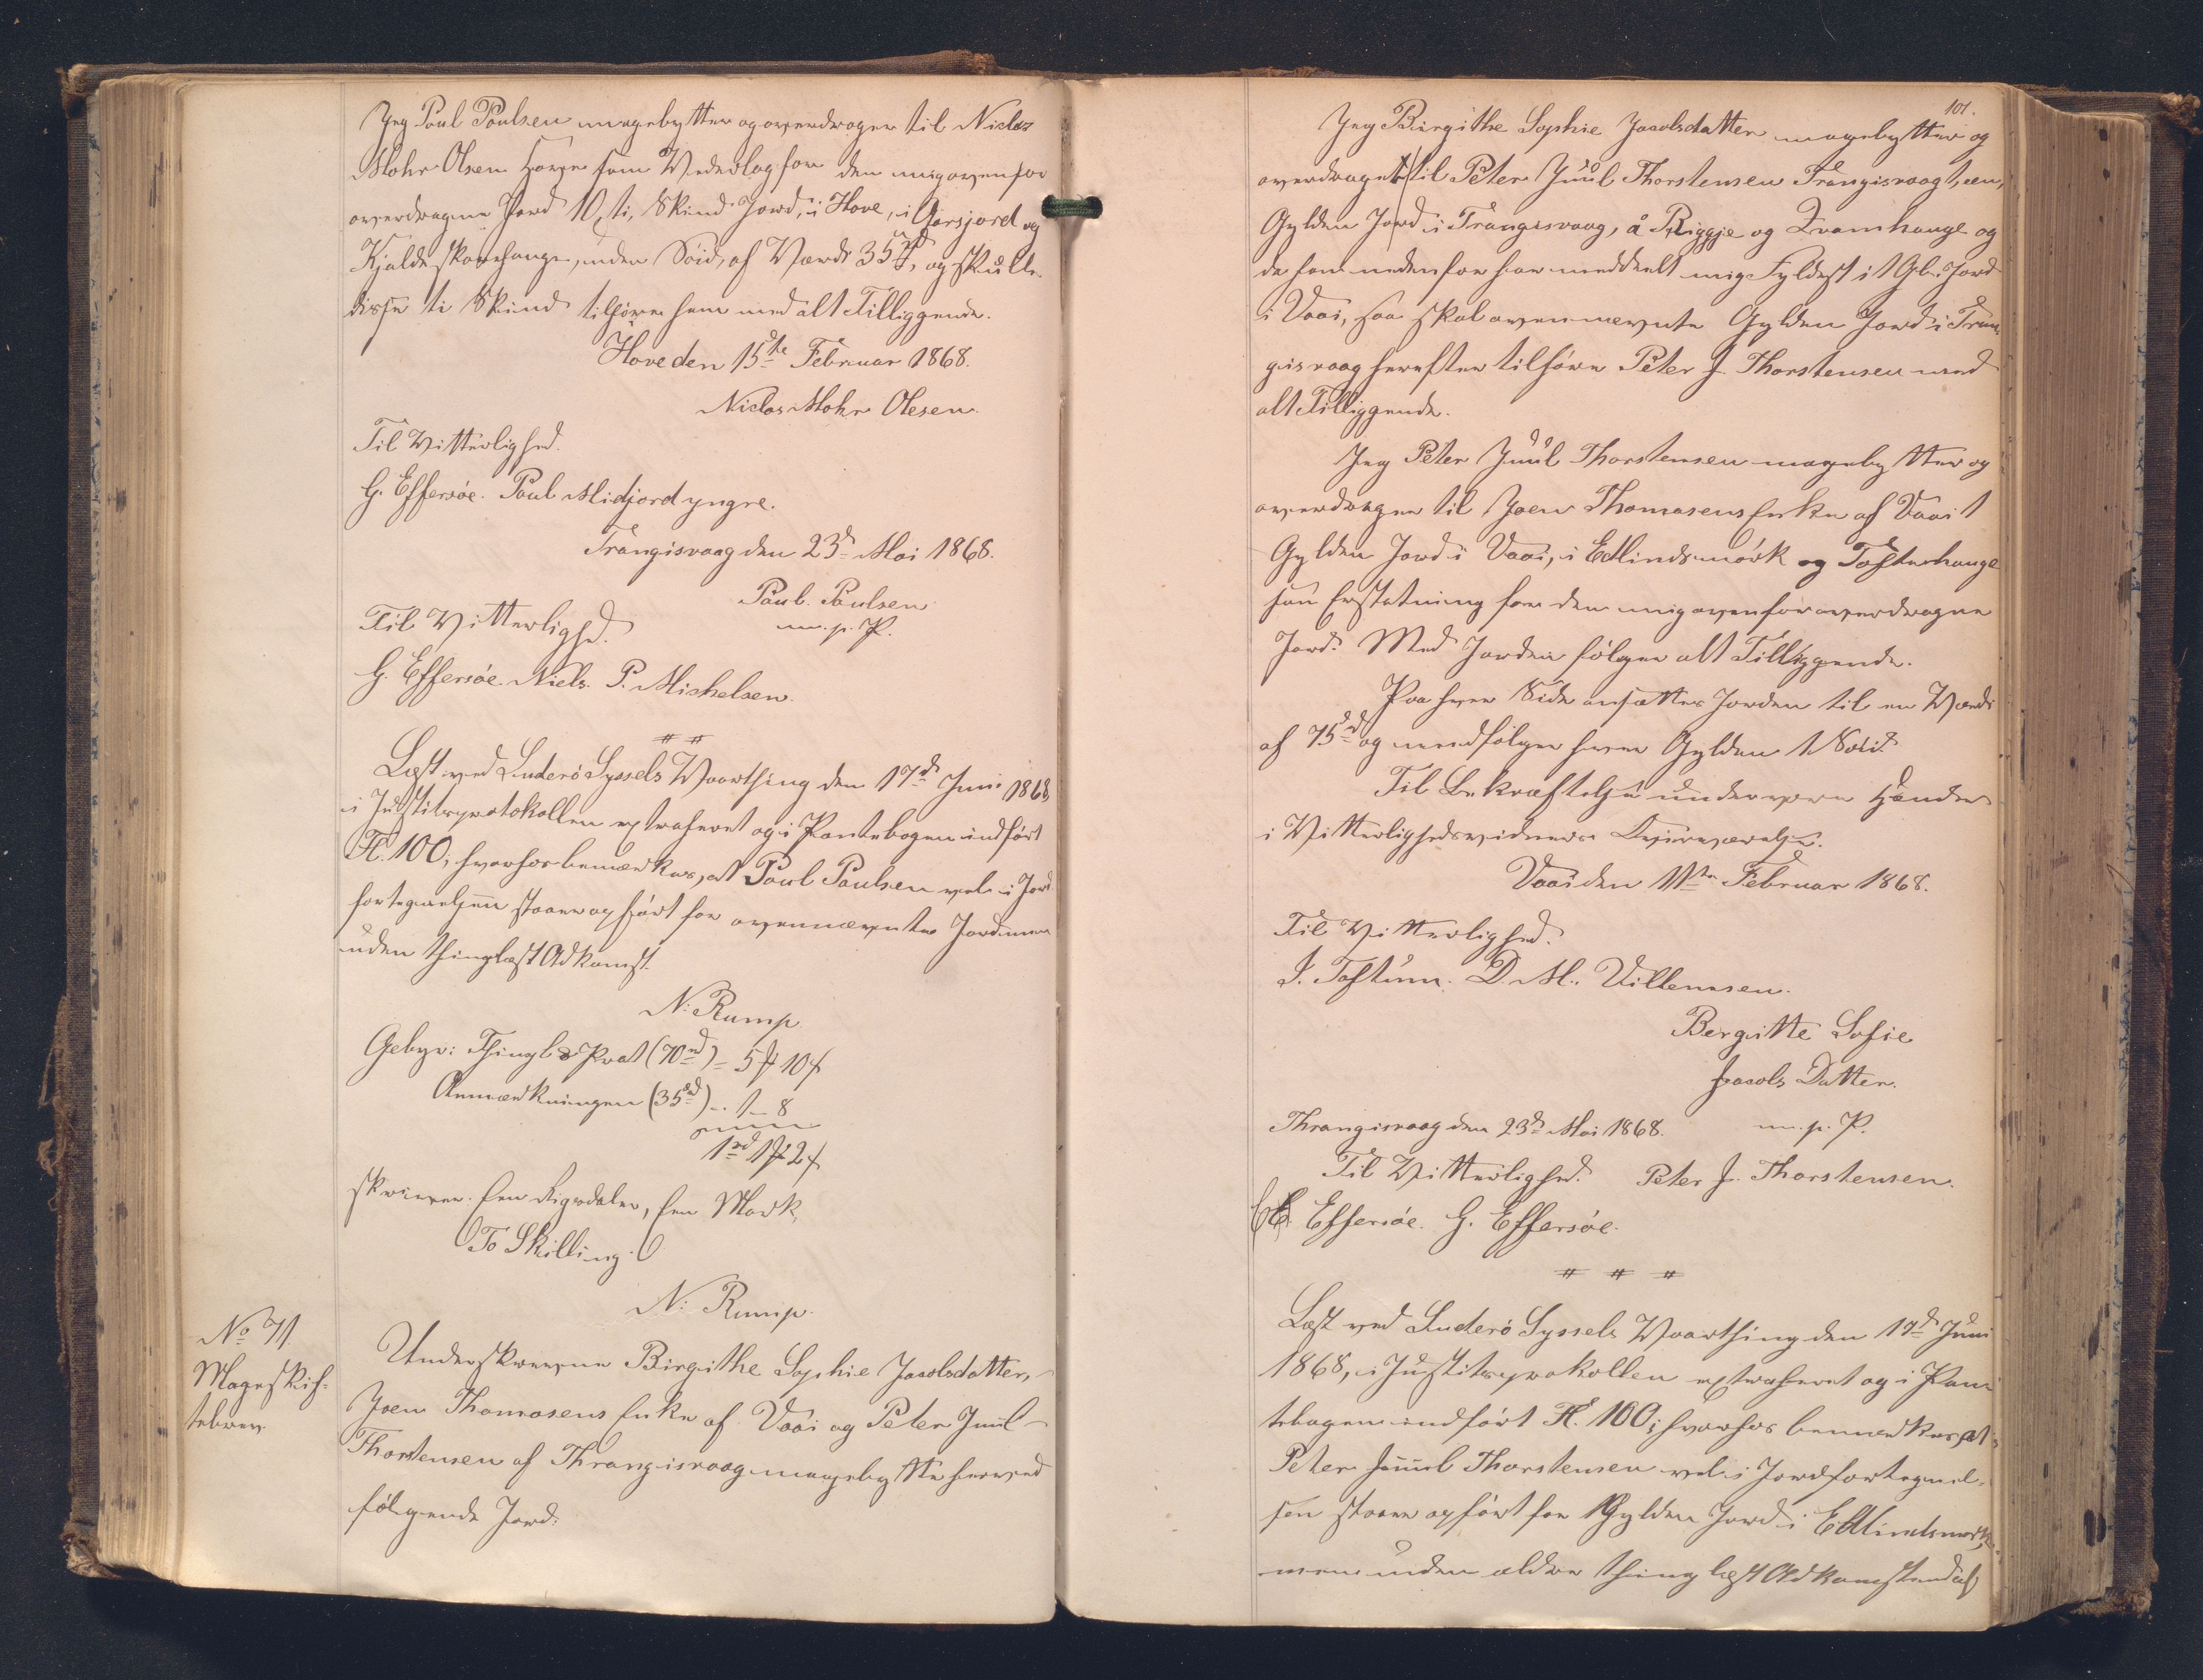 Jeg Poul Poulsen magebytter og overdrager til Niclas
Mohr Olsen Hove som Vederlag for den mig ovenfor
overdragne Jord 10, ti, Skind Jord, i Hove, i Garsjord og
Kjaldeskarehauge, uden Söid, af Værdi 35 rd, og skulle
disse ti Skind tilhøre ham med alt Tilliggende.
Hove den 15de Februar 1868.
Niclas Mohr Olesen.
Til Vitterlighed.
G. Effersöe. Poul Midjord yngre.
Trangisvaag den 23de Mai 1868.
Poul Poulsen
m. p. P.
Til Vitterlighed.
G. Effersöe. Niels P. Michelsen.
# #
Læst ved Suderö Syssels Vaarthing den 17de Juni 1868,
i Justitsprotokollen extraheret og i Pantebogen indført
Fl. 100; hvorhos bemærkes, at Poul Poulsen vel i Jord-
fortegnelsen staaer opført for ovennævnte Jord men
uden thinglæst Adkomst.
N: Rump
Gebyr: Thingl & Prot (70 rd) = 5 # 10 ß
Anmærkningen (35 rd) .. 1 – 8
1 rd 1 # 2 ß
skriver Een Rigsdaler, Een Mark,
To Skilling.
N: Rump.
No 71.
Mageskif-
tebrev.
Underskrevne Birgithe Sophie Jacobsdatter,
Joen Thomasens Enke af Vaai og Peter Juul
Thorstensen af Thrangisvaag magebytte herved
følgende Jord:
101.
Jeg Birgithe Sophie Jacobsdatter magebytter og
overdraget til Peter Juul Thorstensen Trangisvaag 1, een,
Gylden Jord i Trangisvaag, á Riggje og Kvamhauge og
da han nedenfor har meddeelt mig Fyldest i 1 Gl. Jord
i Vaai, saa skal ovennævnte Gylden Jord i Tran-
gisvaag herefter tilhøre Peter J. Thorstensen med
alt Tilliggende.
Jeg Peter Juul Thorstensen magebytter og
overdrager til Joen Thomasens Enke af Vaai 1
Gylden Jord i Vaai, i Edlindsmörk og Toftehauge
som Erstatning for den mig ovenfor overdragne
Jord. Med Jorden følger alt Tilliggende.
Paa hver Side ansættes Jorden til en Værdi
af 75 rd og medfølger hver Gylden 1 Söid.
Til Bekræftelse under vore Hænder
i Vitterlighedsvidners Overværelse.
Vaai den 11te Februar 1868.
Til Vitterlighed.
J. Toftum. D. M. Villemsen.
Bergitte Sofie
Jacobs Datter.
m. p. P.
Thrangisvaag den 23de Mai 1868.
Til Vitterlighed. Peter J. Thorstensen.
E. Effersöe. G. Effersöe.
# # #
Læst ved Suderö Syssels Vaarthing den 17de Juni
1868, i Justitsprokollen extraheret og i Pan-
tebogen indført Fl. 100; hvorhos bemærkes, at
Peter Juuul Thorstensen vel i Jordfortegnel-
sen staaer opført for 1 Gylden Jord i Edlindsmørk,
men uden ældre thinglæst Adkomst